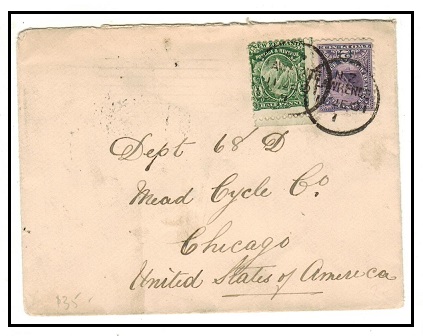 Dept 68 D
Mead Cycle Co.
Chicago
United States of America
135